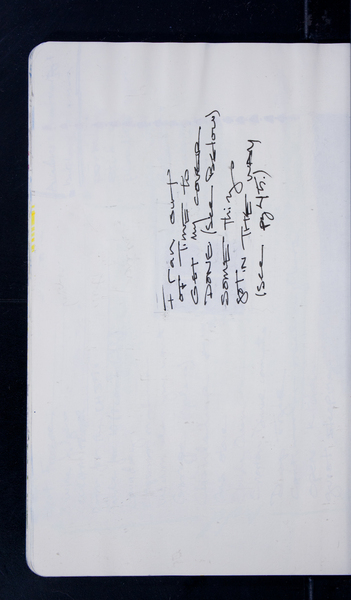 I ran out
of TIME to
GET my COVER
DONE (see BeLow)
SOME things
GOT IN THE WAY
(see pg